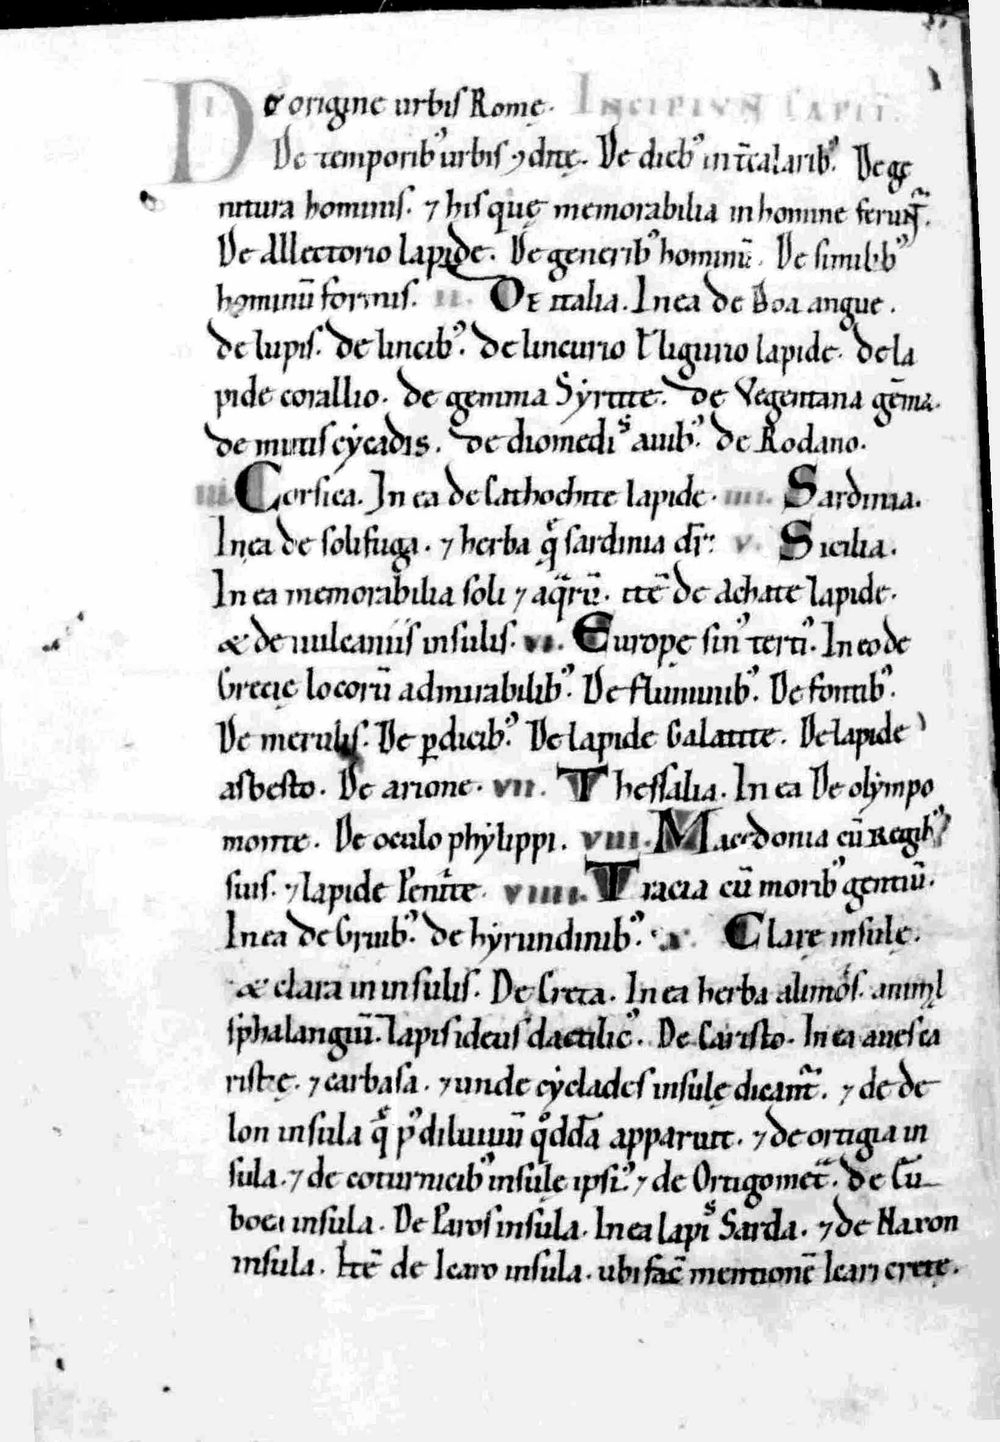 De origine urbis Romę. INCIPIUN CAPIT̄.
De temporib᾿ urbis ⁊ dite. De dieb᾿ int̄calarib᾿. De ge
nitura hominis. ⁊ his quę memorabilia in homine ferunt̄.
De Allectorio lapide. De generib᾿ hominū. De similib᾿
hominū formis. II. DE italia. In ea de Boa angue.
de lupis. de lincib᾿. de lincurio ł ligurio lapide. de la
pide corallio. de gemma Syrtite. de Vegentana gēma.
de mutis cycadis. de diomedis auib᾿. de Rodano.
III. Corsica. In ea de Cathochite lapide. IIII. Sardinia.
In ea de solifuga. ⁊ herba q̄ sardinia dr̄. V. Sicilia.
In ea memorabilia soli ⁊ aq̄rū. itē de Achate lapide.
& de uulcaniis insulis. VI. Europę sin᾿ terti᾿. In eo de
Grecię locorū admirabilib᾿. De fluminib᾿. De fontib᾿.
De merulis. De p̱dicib᾿. De lapide Galatite. De lapide
asbesto. De arione. VII. Thessalia. In ea De olympo
monte. De oculo phylippi. VIII. Macedonia cū Regib᾿
suis. ⁊ lapide Penite. VIIII. Tracia cū morib᾿ gentiū.
In ea de Gruib᾿. de hyrundinib᾿. X. Clarę insulę.
& clara in insulis. De Creta. In ea herba alimos. animl
sphalangiū. lapis ideus dactilic᾿. De Caristo. In ea aues ca
ristię. ⁊ carbasa. ⁊ unde cyclades insulę dicant̄. ⁊ de de
lon insula q̄ p᾿ diluuiū q̊ddā apparuit. ⁊ de ortigia in
sula. ⁊ de coturnicib᾿ insulę ipsi᾿. ⁊ de Ortigomet̄. de Eu
boea insula. De Paros insula. In ea lapis Sarda. ⁊ de Naxon
insula. Itē de Icaro insula. ubi fac̄ mentionē Icari cretę.